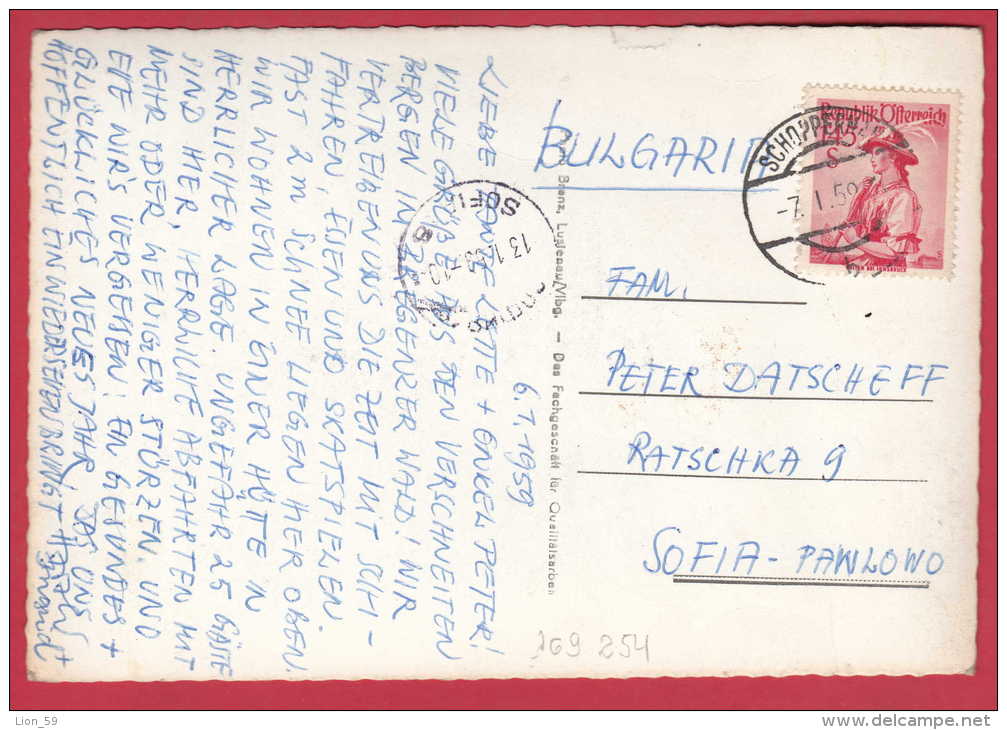 6.1.1959
LIEBE TANTE LETTE + ONKEL PETER!
VIELE GRÜßE AUS DEN VERSCHNEITEN
BERGEN IN BREGENZER WALD! WIR
VERTREIBEN UNS DIE ZEIT MIT SCHI-
FAHREN, ESSEN UND SKATSPIELEN
FAST 2 m SCHNEE LIEGEN HIER OBEN.
WIR WOHNEN IN EINER HÜTTE IN
HERRLICHER LAGE. UNGEFÄHR 25 GÄSTE
SIND HIER, HERNLIFE ABFAHRTEN MIT
MEHR ODER WENIGER STÜRZEN. UND
EHE WIR'S VERGESSEN! EIN GESUNDES +
GLÜCKLICHES NEUES JAHR, DAS UNS
HOFFENTLICH EIN WIEDERSEHEN BRINGT
+ Ingrid
Branz, Lustenau/Vlbg. — Das Fachgeschäft für Qualitätsarbeit
BULGARIEN
Republik Österreich
1.45
S
SCHOPPERNAU
-7. I. 59
SOFI
13.1.59-10
FAM.
PETER DATSCHEFF
RATSCHKA 9
SOFIA-PAWLOWO
169 254
Lion_59
www.delcampe.net